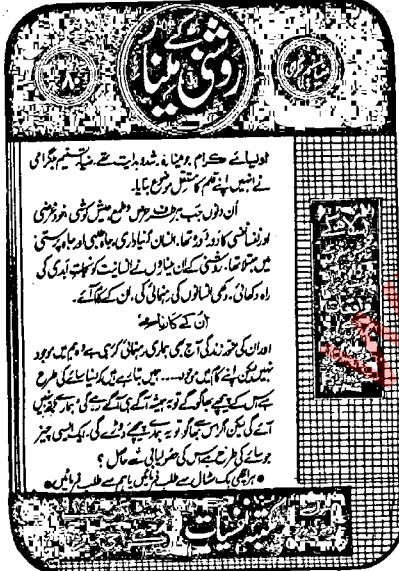 روشنی کے مینار
۸
اولیائے کرام جو مینارہ رشد و ہدایت تھے۔ ضیا تسنیم بلگرامی
نے انہیں اپنے قلم کا مستقل موضوع بنایا۔
اُن دنوں جب ہر طرف حرص و طمع عیش کوشی خود غرضی
اور نفسا نفسی کا دور دورہ تھا۔ انسان دنیاداری، جاہ طلبی اور جاہ پرستی
میں مبتلا تھا۔ روشنی کے ان میناروں نے انسانیت کو نجات ابدی کی
راہ دکھائی۔ دکھی انسانوں کی رہنمائی کی۔ ان کے کام آئے۔
اُن کے کارنامے
اور ان کی زندگی آج بھی ہماری رہنمائی کر رہی ہے وہ ہم میں موجود
نہیں لیکن اپنے کام میں موجود ..... ہمیں بتا رہے ہیں کہ دنیا سائے کی طرح
ہے اس کے پیچھے بھاگو گے تو یہ ہمیشہ آگے ہی آگے رہے گی، تمہارے ہاتھ نہیں
آئے گی لیکن اگر اس سے بھاگو تو یہ تمہارے پیچھے دوڑے گی، ایک ایسی چیز
جو سائے کی طرح ہے اس کی حصولیابی سے حاصل؟
• ہر اچھے بک سٹال سے طلب فرمائیں یا ہم سے طلب فرمائیں •
مکتبہ نفسیات